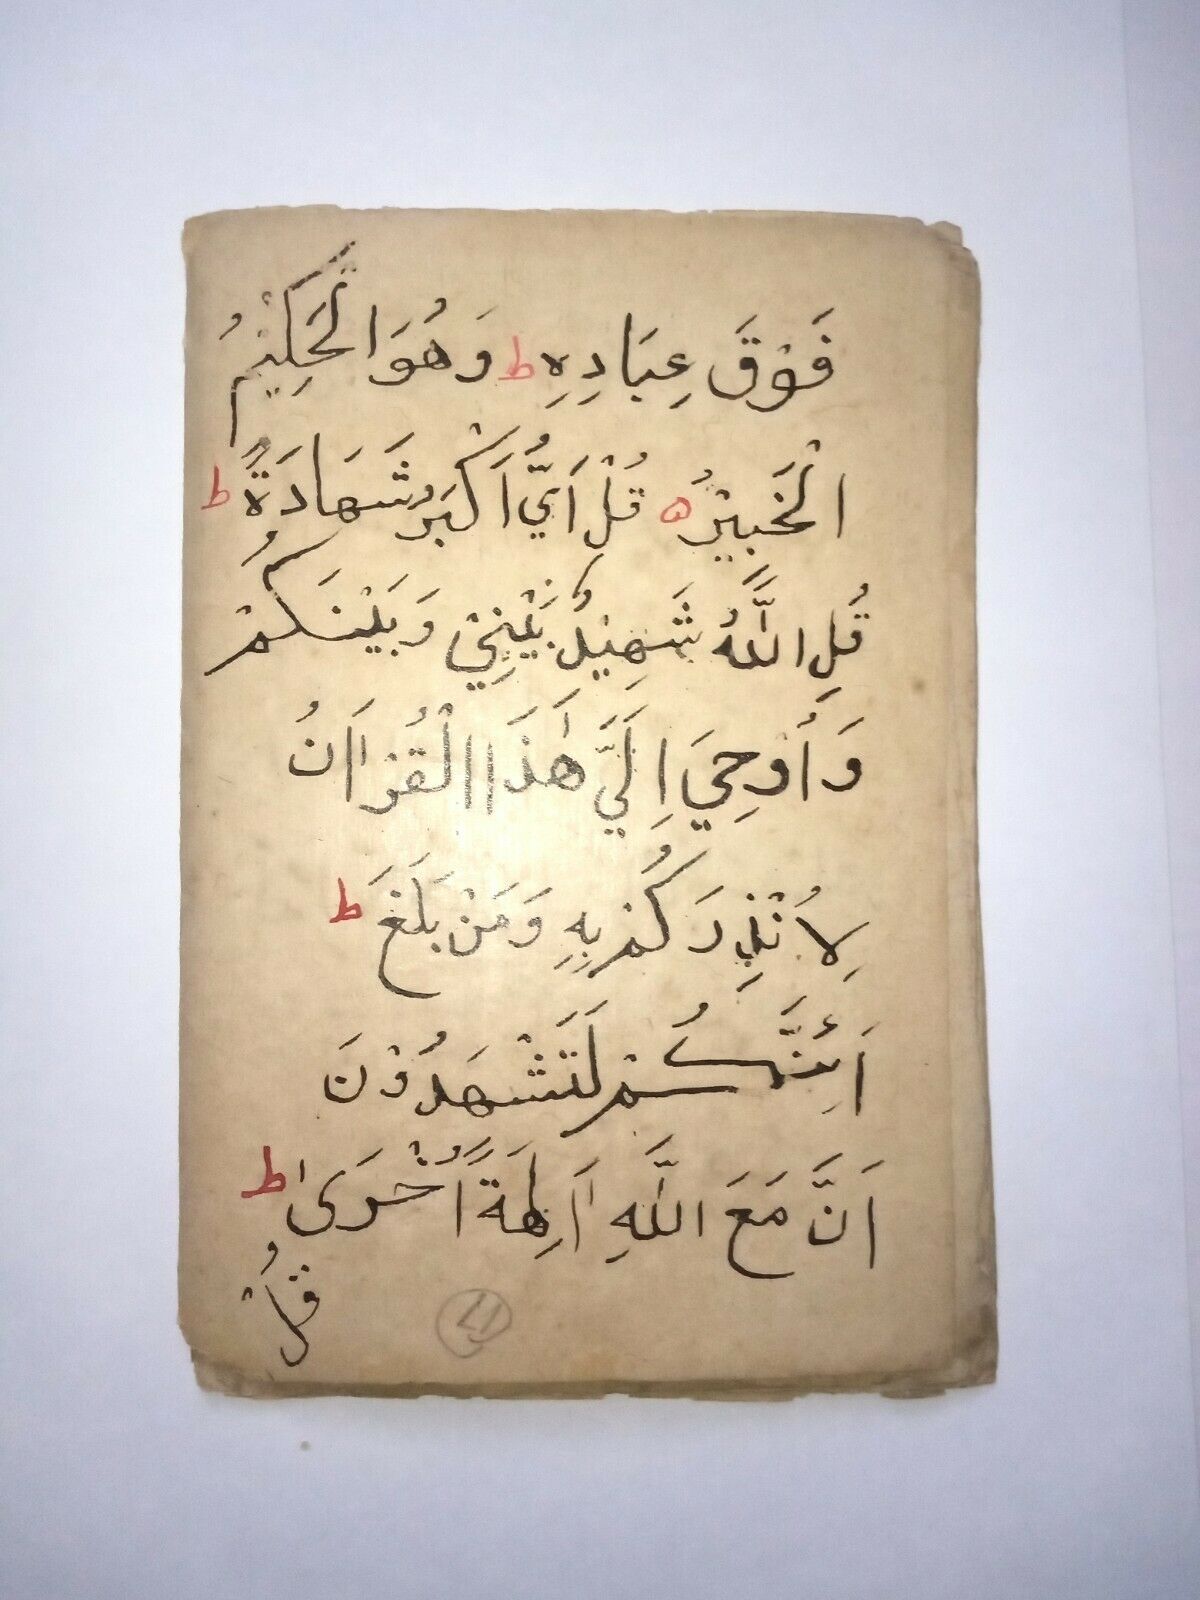 فَوْقَ عِبَادِهِ ط وَهُوَ الْحَكِيْمُ
الْخَبِيْرُ ه قُلْ اَيُّ اَكْبَرُ شَهَادَةً ط
قُلِ اللَّهُ شَهِيْدٌ بَيْنِيْ وَبَيْنَكُمْ
وَاُوْحِيَ اِلَيَّ هٰذَا الْقُرْاٰنُ
لِاُنْذِرَكُمْ بِهِ وَمَنْ بَلَغَ ط
اَئِنَّكُمْ لَتَشْهَدُوْنَ
اَنَّ مَعَ اللَّهِ اٰلِهَةً اُخْرَىٰ ط
قُلْ